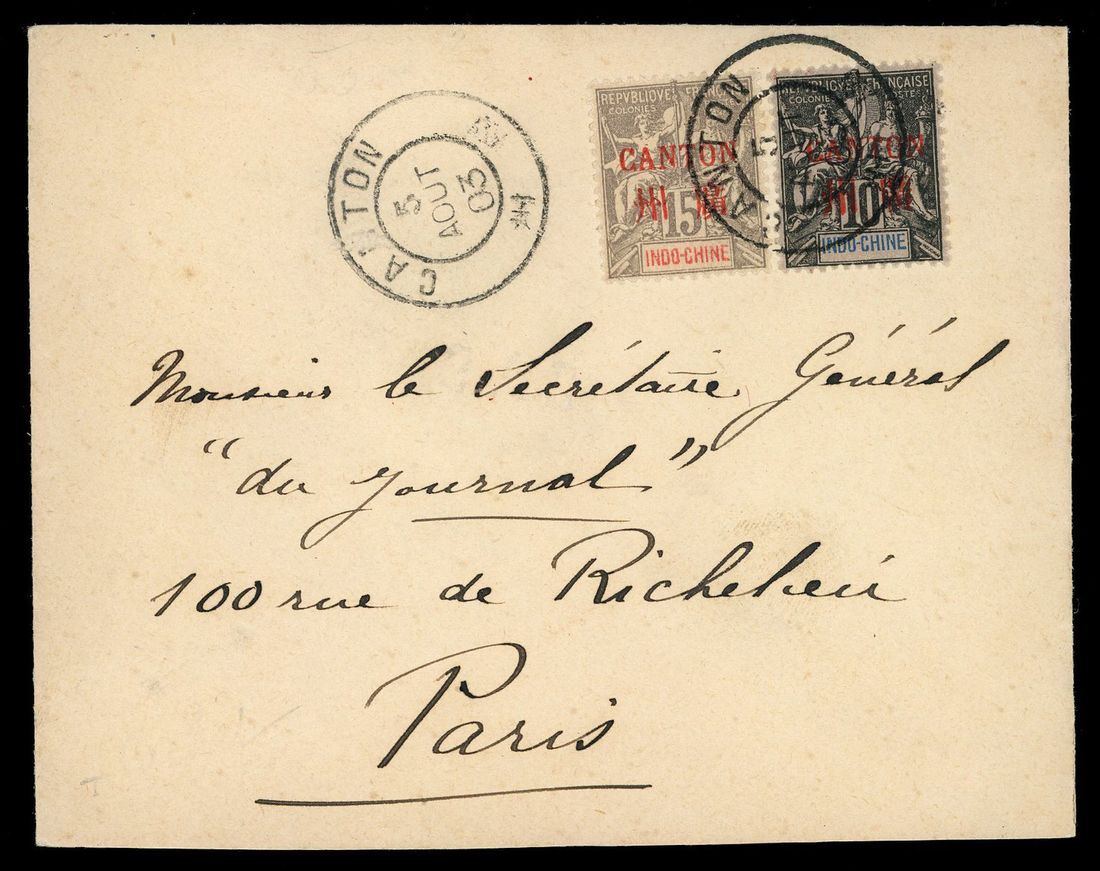 CANTON
廣
州
5
AOUT
03
REPVBLIQVE FRANÇAISE
COLONIES
CANTON
州 廣
15
INDO-CHINE
REPVBLIQVE FRANÇAISE
COLONIES
CANTON
州 廣
10
INDO-CHINE
CANTON
5
Monsieur le Secrétaire Général
"du Journal"
100 rue de Richelieu
Paris